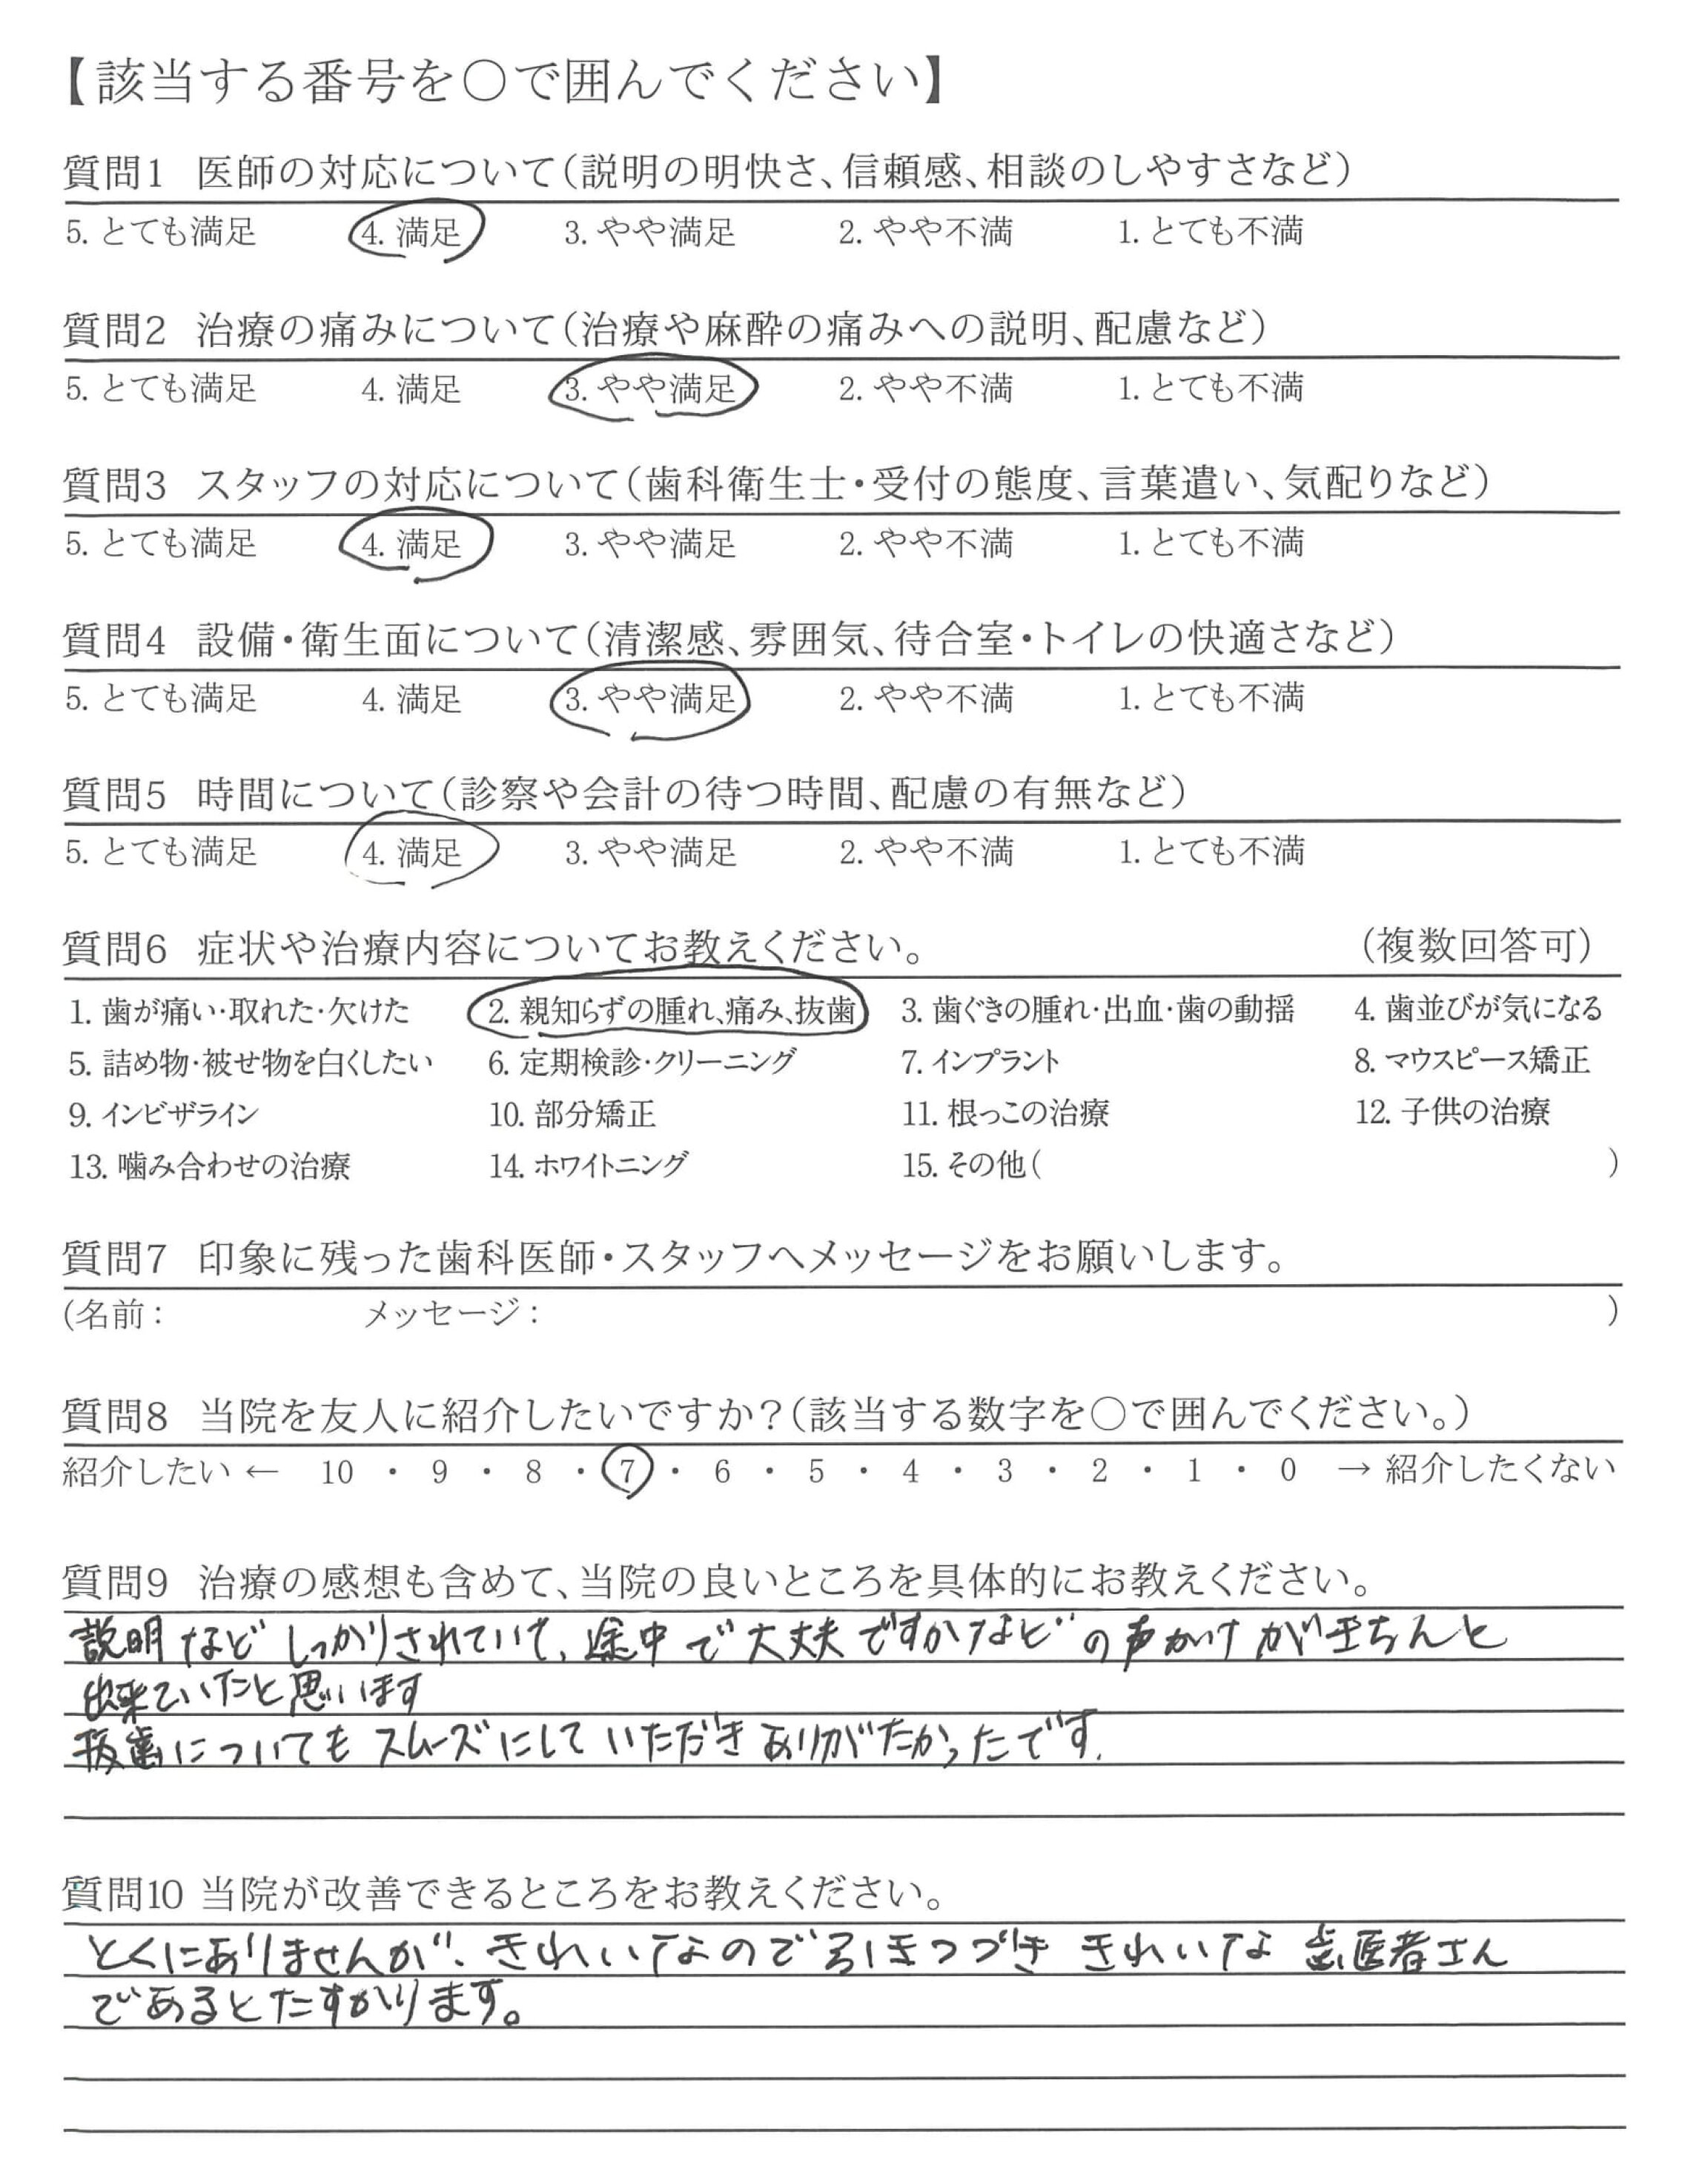 【該当する番号を○で囲んでください】
質問1 医師の対応について(説明の明快さ、信頼感、相談のしやすさなど)
5. とても満足 4. 満足 3. やや満足 2. やや不満 1. とても不満
質問2 治療の痛みについて(治療や麻酔の痛みへの説明、配慮など)
5. とても満足 4. 満足 3. やや満足 2. やや不満 1. とても不満
質問3 スタッフの対応について(歯科衛生士・受付の態度、言葉遣い、気配りなど)
5. とても満足 4. 満足 3. やや満足 2. やや不満 1. とても不満
質問4 設備・衛生面について(清潔感、雰囲気、待合室・トイレの快適さなど)
5. とても満足 4. 満足 3. やや満足 2. やや不満 1. とても不満
質問5 時間について(診察や会計の待つ時間、配慮の有無など)
5. とても満足 4. 満足 3. やや満足 2. やや不満 1. とても不満
質問6 症状や治療内容についてお教えください。 (複数回答可)
1. 歯が痛い・取れた・欠けた 2. 親知らずの腫れ、痛み、抜歯 3. 歯ぐきの腫れ・出血・歯の動揺 4. 歯並びが気になる
5. 詰め物・被せ物を白くしたい 6. 定期検診・クリーニング 7. インプラント 8. マウスピース矯正
9. インビザライン 10. 部分矯正 11. 根っこの治療 12. 子供の治療
13. 噛み合わせの治療 14. ホワイトニング 15. その他( )
質問7 印象に残った歯科医師・スタッフへメッセージをお願いします。
(名前: メッセージ: )
質問8 当院を友人に紹介したいですか?(該当する数字を○で囲んでください。)
紹介したい ← 10 ・ 9 ・ 8 ・ 7 ・ 6 ・ 5 ・ 4 ・ 3 ・ 2 ・ 1 ・ 0 → 紹介したくない
質問9 治療の感想も含めて、当院の良いところを具体的にお教えください。
説明などしっかりされていて、途中で大丈夫ですかなどの声かけがきちんと
出来ていたと思います
抜歯についてもスムーズにしていただきありがたかったです.
質問10 当院が改善できるところをお教えください。
とくにありませんが、きれいなので引きつづききれいな歯医者さん
であるとたすかります。